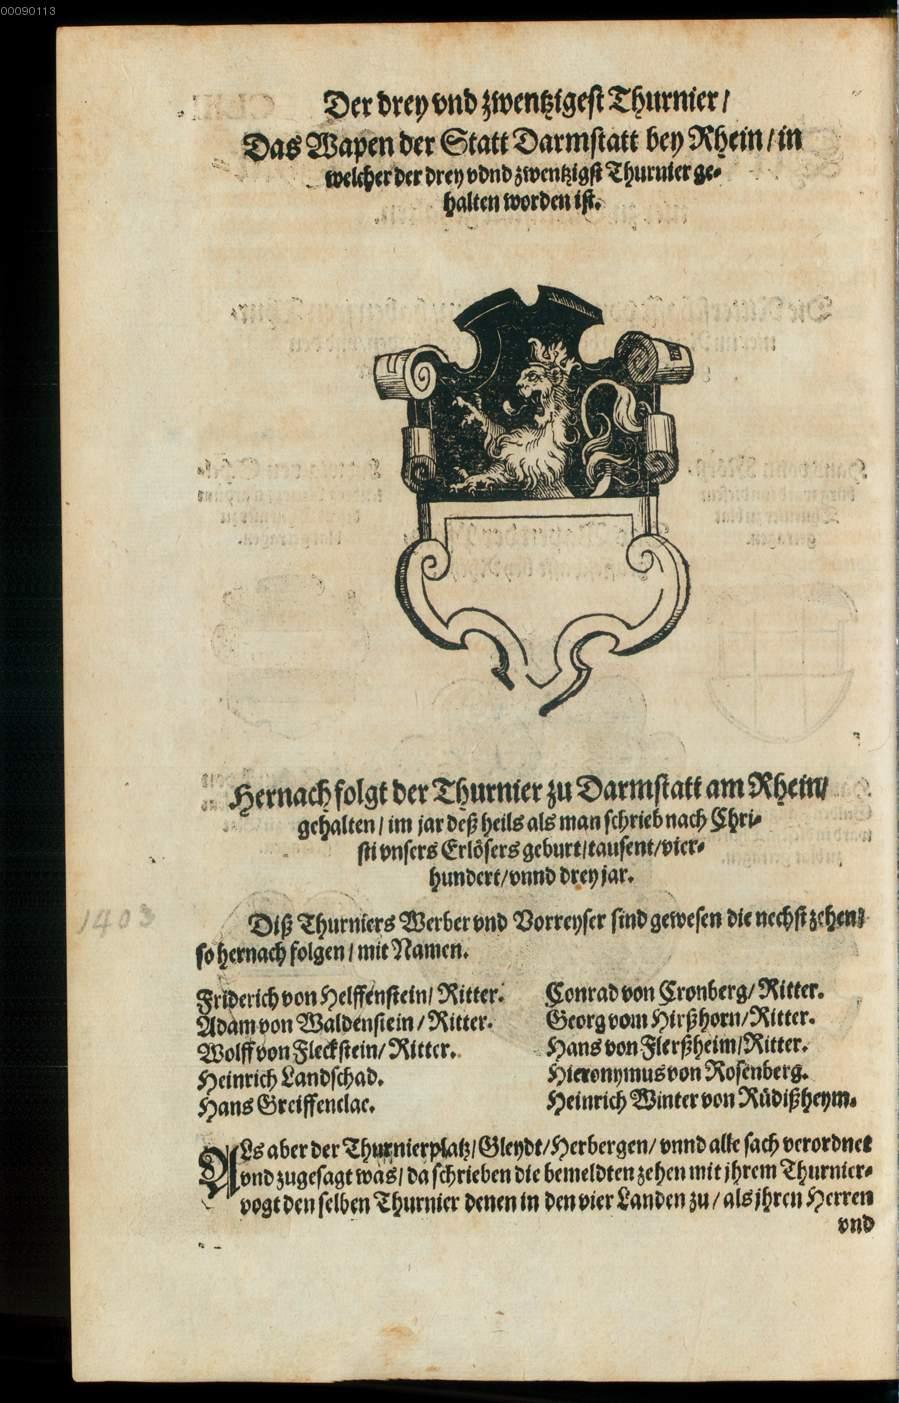 00090113
Der drey vnd zwentzigest Thurnier/
Das Wapen der Statt Darmstatt bey Rhein/ in
welcher der drey vdnd zwentzigst Thurnier ge-
halten worden ist.
Hernach folgt der Thurnier zu Darmstatt am Rhein/
gehalten/ im jar deß heils als man schrieb nach Chri-
sti vnsers Erlösers geburt/ tausent/ vier-
hundert/ vnnd drey jar.
1403
Diß Thurniers Werber vnd Vorreyser sind gewesen die nechst zehen/
so hernach folgen/ mit Namen.
Friderich von Helffenstein/ Ritter.
Adam von Waldenstein/ Ritter.
Wolff von Fleckstein/ Ritter.
Heinrich Landschad.
Hans Greiffenclac.
Conrad von Cronberg/ Ritter.
Georg vom Hirßhorn/ Ritter.
Hans von Flerßheim/ Ritter.
Hieronymus von Rosenberg.
Heinrich Winter von Rüdißheym.
ALs aber der Thurnierplatz/ Gleydt/ Herbergen/ vnnd alle sach verordnet
vnd zugesagt was/ da schrieben die bemeldten zehen mit jhrem Thurnier-
vogt den selben Thurnier denen in den vier Landen zu/ als jhren Herren
vnd